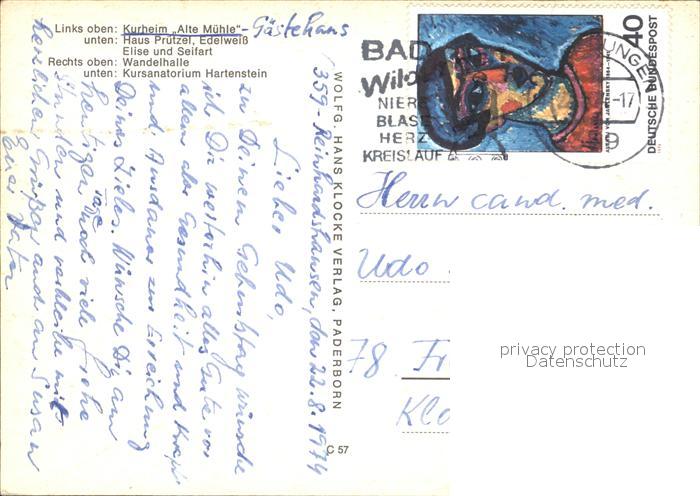 Links oben: Kurheim „Alte Mühle" - Gästehaus
unten: Haus Prützel, Edelweiß
Elise und Seifart
Rechts oben: Wandelhalle
unten: Kursanatorium Hartenstein
359 - Reinhardshausen, den 22.8.1974
Lieber Udo,
zu Deinem Geburtstag wünsche
ich Dir weiterhin alles Gute vor
allem des Gesundheit und Kraft
und Ausdauer zur Erreichung
Deines Zieles. Wünsche Dir am
heutigen Tage noch viele frohe
Stunden und verbleibe mit
herzlichen Grüßen auch an Susan
Euer Vater
WOLFG. HANS KLOCKE VERLAG, PADERBORN
C 57
BAD
Wild
NIERE
BLASE
HERZ
KREISLAUF
UNGEN
-17
40
DEUTSCHE BUNDESPOST
Herrn cand. med.
Udo
78 Fr
Klo
privacy protection
Datenschutz